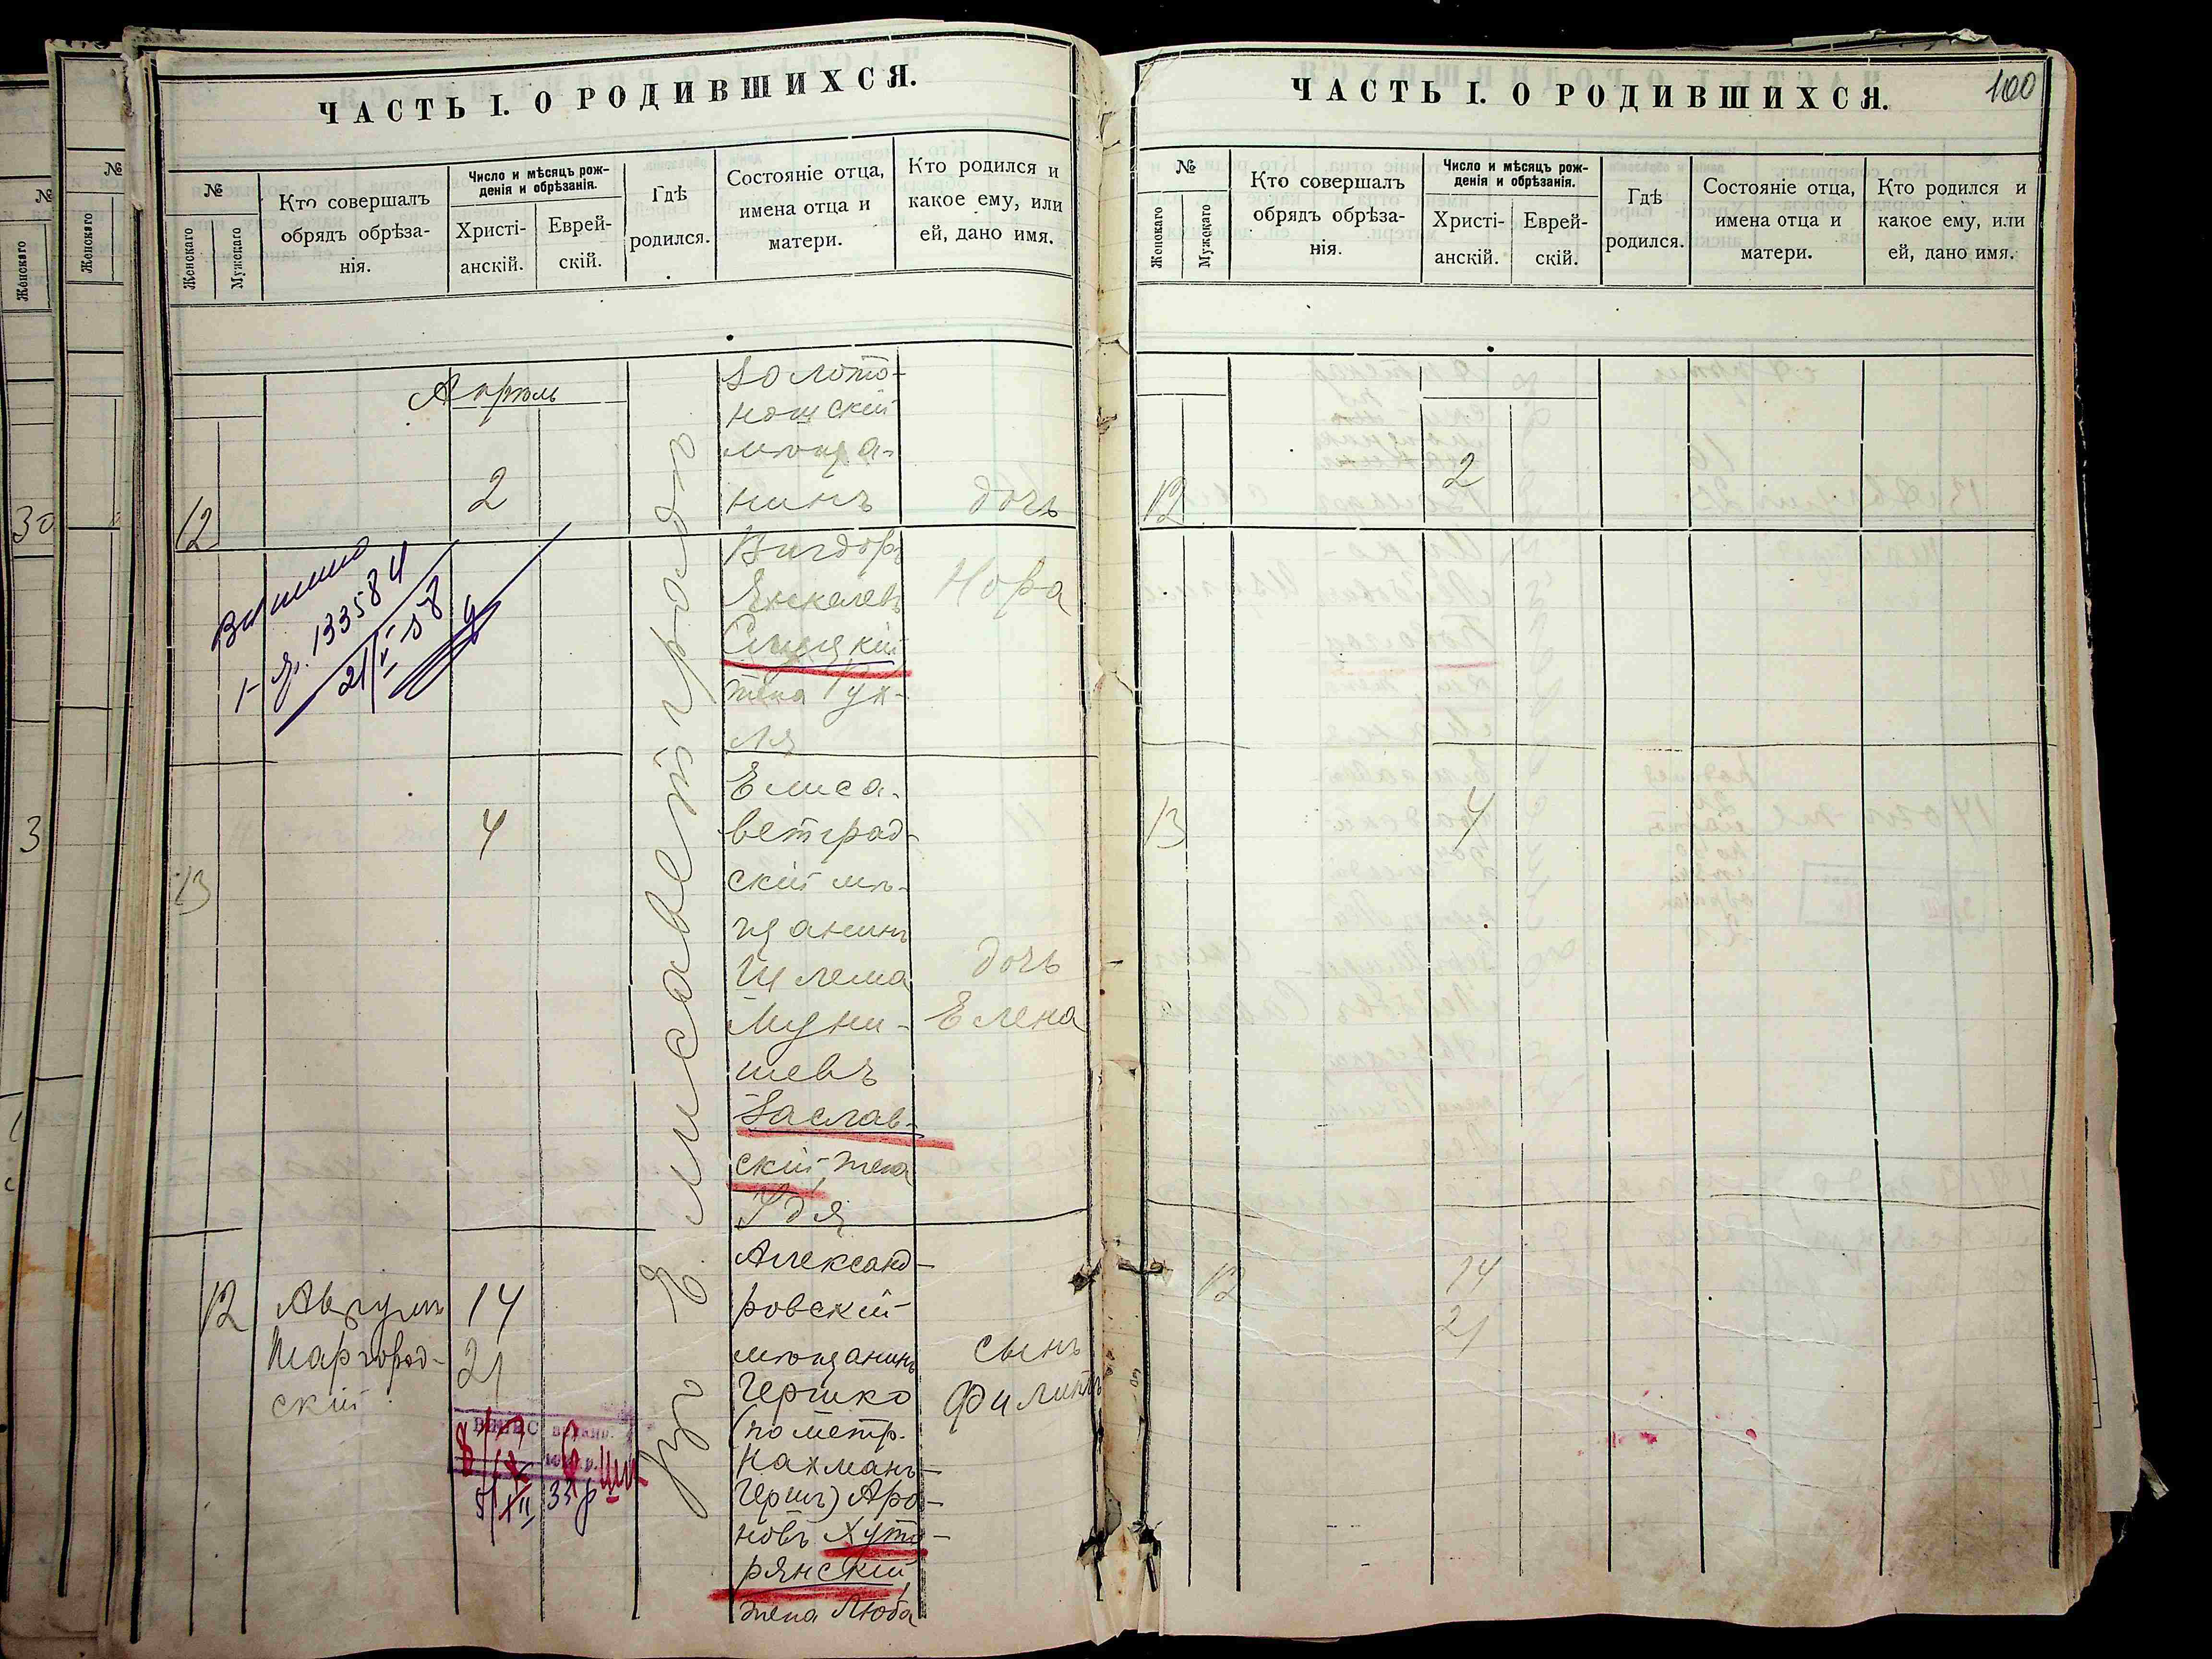 ЧАСТЬ I. О РОДИВШИХСЯ.
№
Женскаго
Мужскаго
Кто совершалъ
обрядъ обрѣза-
нія.
Число и мѣсяцъ рож-
денія и обрѣзанія.
Христі-
анскій.
Еврей-
скій.
Гдѣ
родился.
Состояніе отца,
имена отца и
матери.
Кто родился и
какое ему, или
ей, дано имя.
Апрѣль
12
2
Золото-
ношскій
мѣща-
нинъ
Вигдоръ
Янкелевъ
Слуцкій
жена Рух-
ля
дочь
Нора
1-
133584
21/V-58
въ Елисаветградѣ
13
4
Елиса-
ветград-
скій мѣ-
щанинъ
Шлема
Муни-
шевъ
Заслав-
скій жена
дочь
Елена
12
Шаргород-
скій
14
21
5/XII 33
Александ-
ровскій
мѣщанинъ
Гершко
(по метр.
Нахманъ-
Гершъ) Аро-
новъ Хуто-
рянскій
жена Люба
сынъ
Филиппъ
ЧАСТЬ I. О РОДИВШИХСЯ.
100
№
Женскаго
Мужскаго
Кто совершалъ
обрядъ обрѣза-
нія.
Число и мѣсяцъ рож-
денія и обрѣзанія.
Христі-
анскій.
Еврей-
скій.
Гдѣ
родился.
Состояніе отца,
имена отца и
матери.
Кто родился и
какое ему, или
ей, дано имя.
12
2
13
4
12
14
21
№
Женскаго
№
Женскаго
30
3